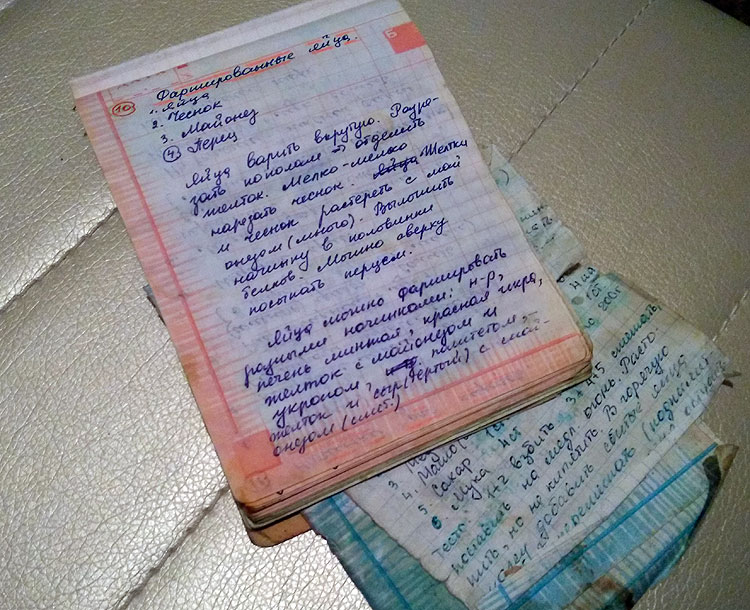 Б
10 Фаршированные яйца.
1. Яйца
2. Чеснок
3. Майонез
4. Перец
Яйца варить вкрутую. Разре-
зать пополам → отделить
желток. Мелко-мелко
нарезать чеснок. Яйца Желтки
и чеснок растереть с май
онезом (много). Выложить
начинку в половинки
белков. Можно сверху
посыпать перцем.
Яйца можно фаршировать
разными начинками: н-р,
печень минтая, красная икра,
желток с майонезом и
укропом, паштетом,
желток и сыр (тёртый) с май-
онезом (смет.)
сметаль,
3.
4.
5. Сахар 1ст
6 Мука 4ст
взбить
поставить на медл. огонь. Расто-
пить, но не кипятить. В горячую
добавить сбитые яйца